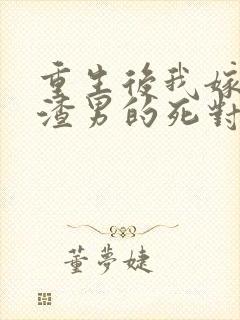 重生後我嫁
渣男的死對
董夢婕